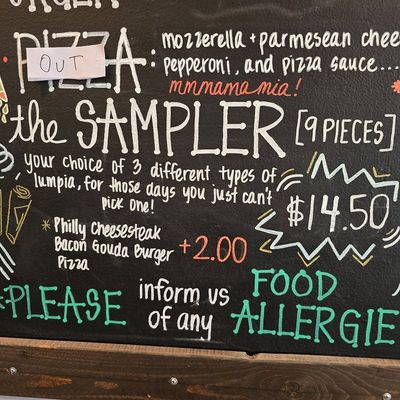 OUT
PIZZA: mozzerella + parmesean chee
pepperoni, and pizza sauce...
mmmama mia!
the SAMPLER [9 PIECES]
your choice of 3 different types of
lumpia, for those days you just can't
pick one!
$14.50
* Philly Cheesesteak
Bacon Gouda Burger +2.00
Pizza
PLEASE inform us of any FOOD
ALLERGIE